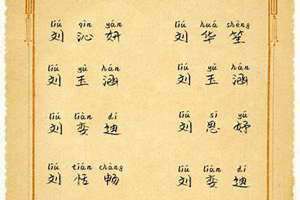 liú qìn yán liú huá shēng
刘 沁 妍 刘 华 笙
liú yù hán liú yù hán
刘 玉 涵 刘 玉 涵
liú luán dí liú sī yú
刘 娈 迪 刘 思 妤
liú tián chàng liú luán dí
刘 恬 畅 刘 娈 迪